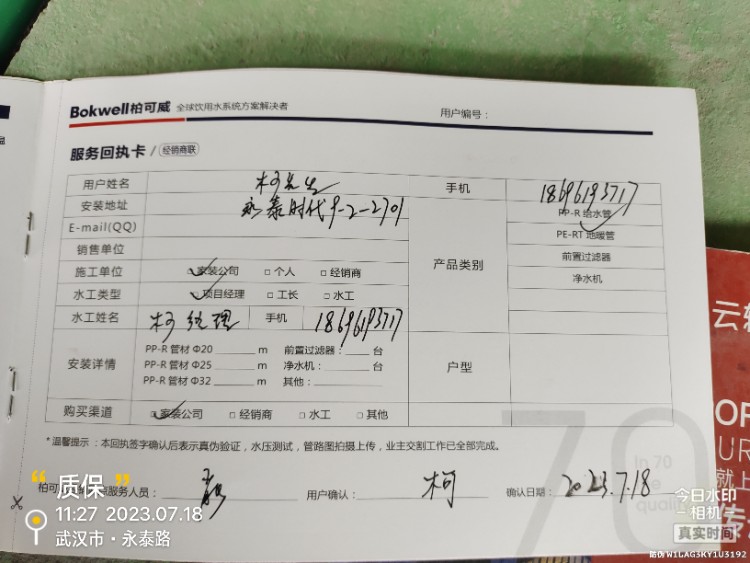 Bokwell柏可威 全球饮用水系统方案解决者
用户编号：
服务回执卡 / 经销商联
用户姓名 柯先生 手机 18696193717
安装地址 永泰时代9-2-2701
E-mail(QQ)
销售单位
产品类别
PP-R 给水管
PE-RT 地暖管
前置过滤器
净水机
施工单位 ☑家装公司 □个人 □经销商
水工类型 ☑项目经理 □工长 □水工
水工姓名 柯经理 手机 18696193717
安装详情
PP-R 管材 Φ20 ____ m 前置过滤器：____ 台
PP-R 管材 Φ25 ____ m 净水机：____ 台
PP-R 管材 Φ32 ____ m 其他：____
户型
购买渠道 ☑家装公司 □经销商 □水工 □其他
*温馨提示：本回执签字确认后表示真伪验证，水压测试，管路图拍摄上传，业主交割工作已全部完成。
服务人员：
用户确认： 柯
确认日期： 2023.7.18
70
In 70
quality
质保
11:27 2023.07.18
武汉市·永泰路
今日水印
相机
真实时间
防伪W1LAG3KY1U3192
云
OP
UR
就上
传